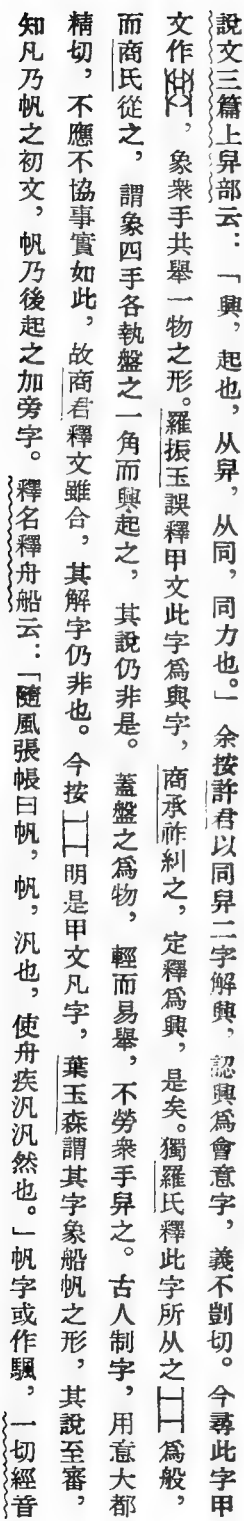 說文三篇上舁部云：「興，起也，从舁，从同，同力也。」余按許君以同舁二字解興，認興爲會意字，義不剴切。今尋此字甲
文作，象衆手共舉一物之形。羅振玉誤釋甲文此字爲與字，商承祚糾之，定釋爲興，是矣。獨羅氏釋此字所从之爲般，
而商氏從之，謂象四手各執盤之一角而興起之，其說仍非是。蓋盤之爲物，輕而易舉，不勞衆手舁之。古人制字，用意大都
精切，不應不協事實如此，故商君釋文雖合，其解字仍非也。今按明是甲文凡字，葉玉森謂其字象船帆之形，其說至審，
知凡乃帆之初文，帆乃後起之加旁字。釋名釋舟船云：「隨風張帳曰帆，帆，汎也，使舟疾汎汎然也。」帆字或作颿，一切經音